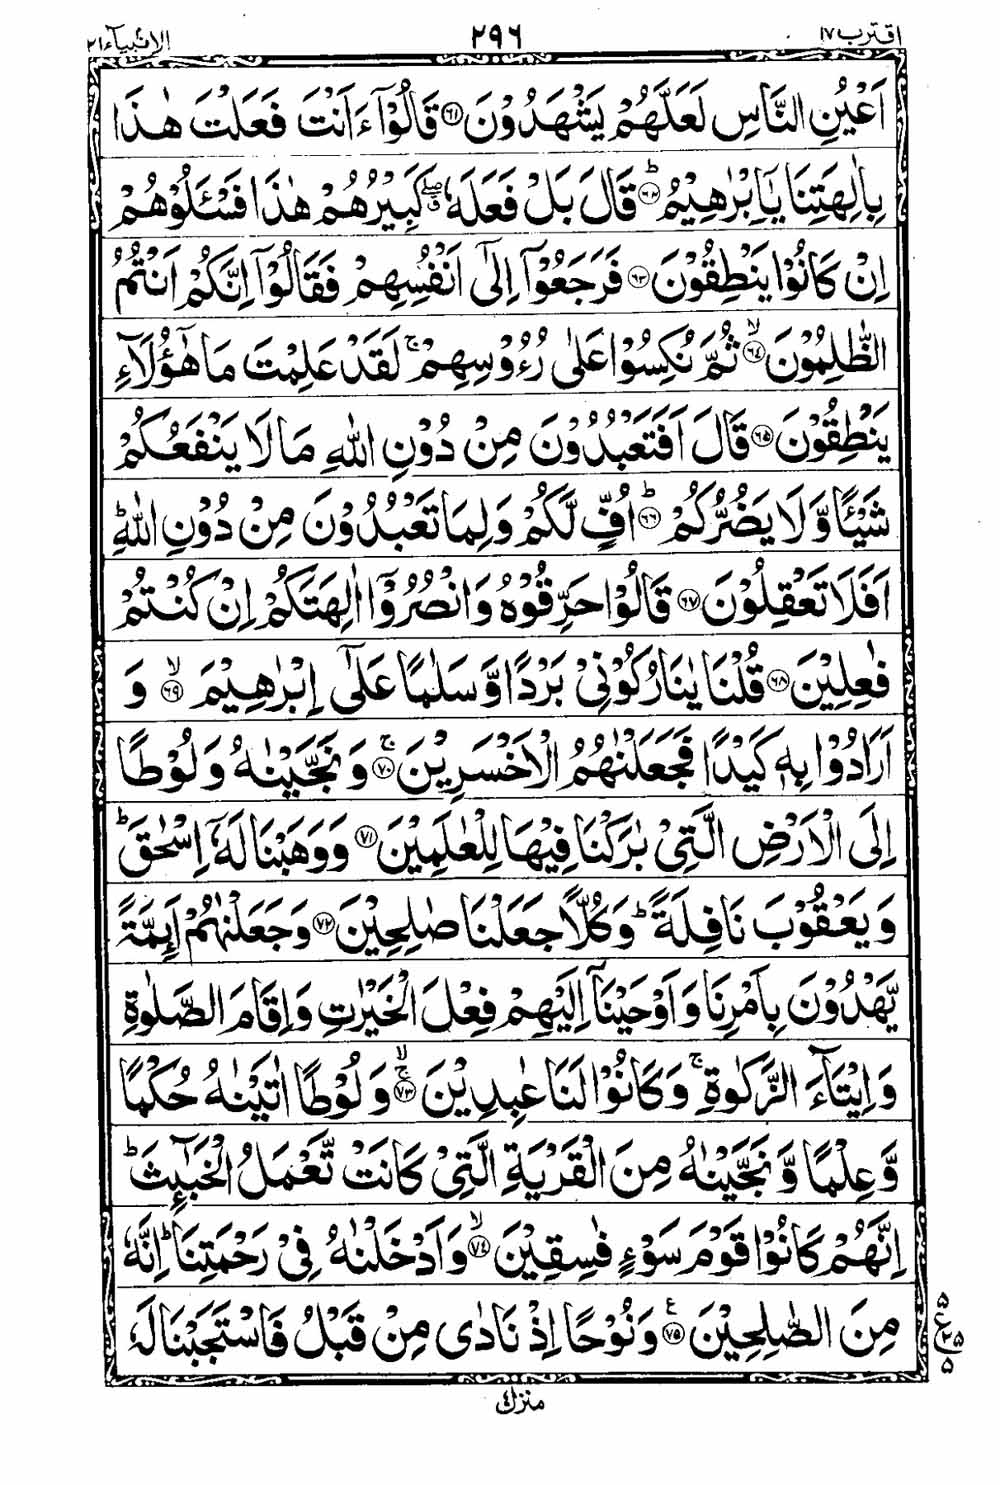 اقترب ١٧ ٢٩٦ الانبياء ٢١
اَعْيُنِ النَّاسِ لَعَلَّهُمْ يَشْهَدُوْنَ ۝٦١ قَالُوْٓا ءَاَنْتَ فَعَلْتَ هٰذَا
بِاٰلِهَتِنَا يٰٓاِبْرٰهِيْمُ ؕ۝٦٢ قَالَ بَلْ فَعَلَهٗ ۖۗ كَبِيْرُهُمْ هٰذَا فَسْـَٔلُوْهُمْ
اِنْ كَانُوْا يَنْطِقُوْنَ ۝٦٣ فَرَجَعُوْٓا اِلٰٓى اَنْفُسِهِمْ فَقَالُوْٓا اِنَّكُمْ اَنْتُمُ
الظّٰلِمُوْنَ ۙ۝٦٤ ثُمَّ نُكِسُوْا عَلٰى رُءُوْسِهِمْ ۚ لَقَدْ عَلِمْتَ مَا هٰٓؤُلَآءِ
يَنْطِقُوْنَ ۝٦٥ قَالَ اَفَتَعْبُدُوْنَ مِنْ دُوْنِ اللّٰهِ مَا لَا يَنْفَعُكُمْ
شَيْـًٔا وَّلَا يَضُرُّكُمْ ؕ۝٦٦ اُفٍّ لَّكُمْ وَلِمَا تَعْبُدُوْنَ مِنْ دُوْنِ اللّٰهِ ؕ
اَفَلَا تَعْقِلُوْنَ ۝٦٧ قَالُوْا حَرِّقُوْهُ وَانْصُرُوْٓا اٰلِهَتَكُمْ اِنْ كُنْتُمْ
فٰعِلِيْنَ ۝٦٨ قُلْنَا يٰنَارُ كُوْنِيْ بَرْدًا وَّسَلٰمًا عَلٰٓى اِبْرٰهِيْمَ ۙ۝٦٩ وَ
اَرَادُوْا بِهٖ كَيْدًا فَجَعَلْنٰهُمُ الْاَخْسَرِيْنَ ۚ۝٧٠ وَنَجَّيْنٰهُ وَلُوْطًا
اِلَى الْاَرْضِ الَّتِيْ بٰرَكْنَا فِيْهَا لِلْعٰلَمِيْنَ ۝٧١ وَوَهَبْنَا لَهٗٓ اِسْحٰقَ ؕ
وَيَعْقُوْبَ نَافِلَةً ؕ وَكُلًّا جَعَلْنَا صٰلِحِيْنَ ۝٧٢ وَجَعَلْنٰهُمْ اَئِمَّةً
يَّهْدُوْنَ بِاَمْرِنَا وَاَوْحَيْنَآ اِلَيْهِمْ فِعْلَ الْخَيْرٰتِ وَاِقَامَ الصَّلٰوةِ
وَاِيْتَآءَ الزَّكٰوةِ ۚ وَكَانُوْا لَنَا عٰبِدِيْنَ ۚۙ۝٧٣ وَلُوْطًا اٰتَيْنٰهُ حُكْمًا
وَّعِلْمًا وَّنَجَّيْنٰهُ مِنَ الْقَرْيَةِ الَّتِيْ كَانَتْ تَّعْمَلُ الْخَبٰٓئِثَ ؕ
اِنَّهُمْ كَانُوْا قَوْمَ سَوْءٍ فٰسِقِيْنَ ۙ۝٧٤ وَاَدْخَلْنٰهُ فِيْ رَحْمَتِنَا ؕ اِنَّهٗ
مِنَ الصّٰلِحِيْنَ ۝٧٥ ع وَنُوْحًا اِذْ نَادٰى مِنْ قَبْلُ فَاسْتَجَبْنَا لَهٗ
۵ ع ۲۵ ۵
منزل ٤